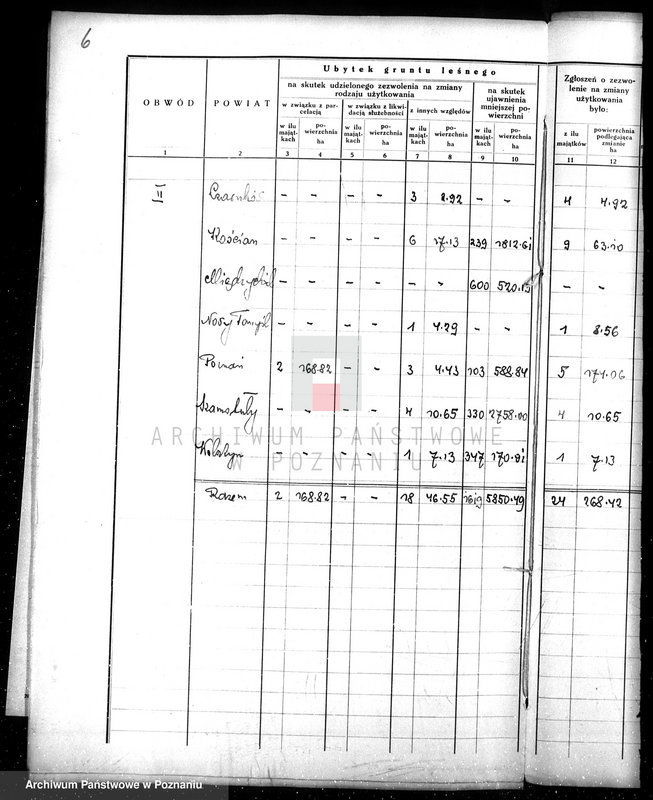 6
Ubytek gruntu leśnego
na skutek udzielonego zezwolenia na zmiany rodzaju użytkowania
na skutek ujawnienia mniejszej powierzchni
Zgłoszeń o zezwolenie na zmiany użytkowania było:
OBWÓD POWIAT
w związku z parcelacją w związku z likwidacją służebności z innych względów
w ilu majątkach powierzchnia ha w ilu majątkach powierzchnia ha w ilu majątkach powierzchnia ha w ilu majątkach powierzchnia ha z ilu majątków powierzchnia podlegająca zmianie ha
1 2 3 4 5 6 7 8 9 10 11 12
II Czarnków - - - - 3 2.92 - - 4 4.92
Kościan - - - - 6 17.13 239 1812.61 9 63.10
Międzychód - - - - - - 600 520.13 - -
Nowy Tomyśl - - - - 1 4.29 - - 1 8.56
Poznań 2 168.82 - - 3 4.43 103 588.84 5 174.06
Szamotuły - - - - 4 10.65 330 2758.00 4 10.65
Wolsztyn - - - - 1 7.13 347 170.91 1 7.13
Razem 2 168.82 - - 18 46.55 1619 5850.49 24 268.42
ARCHIWUM PAŃSTWOWE
W POZNANIU
Archiwum Państwowe w Poznaniu